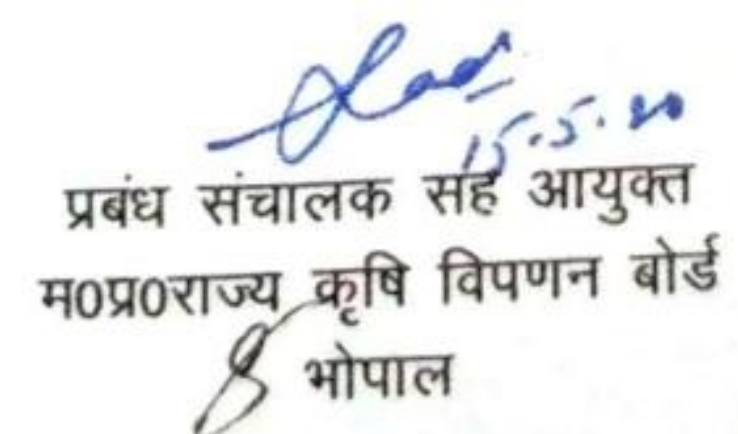 15.5.20
प्रबंध संचालक सह आयुक्त
म0प्र0राज्य कृषि विपणन बोर्ड
भोपाल